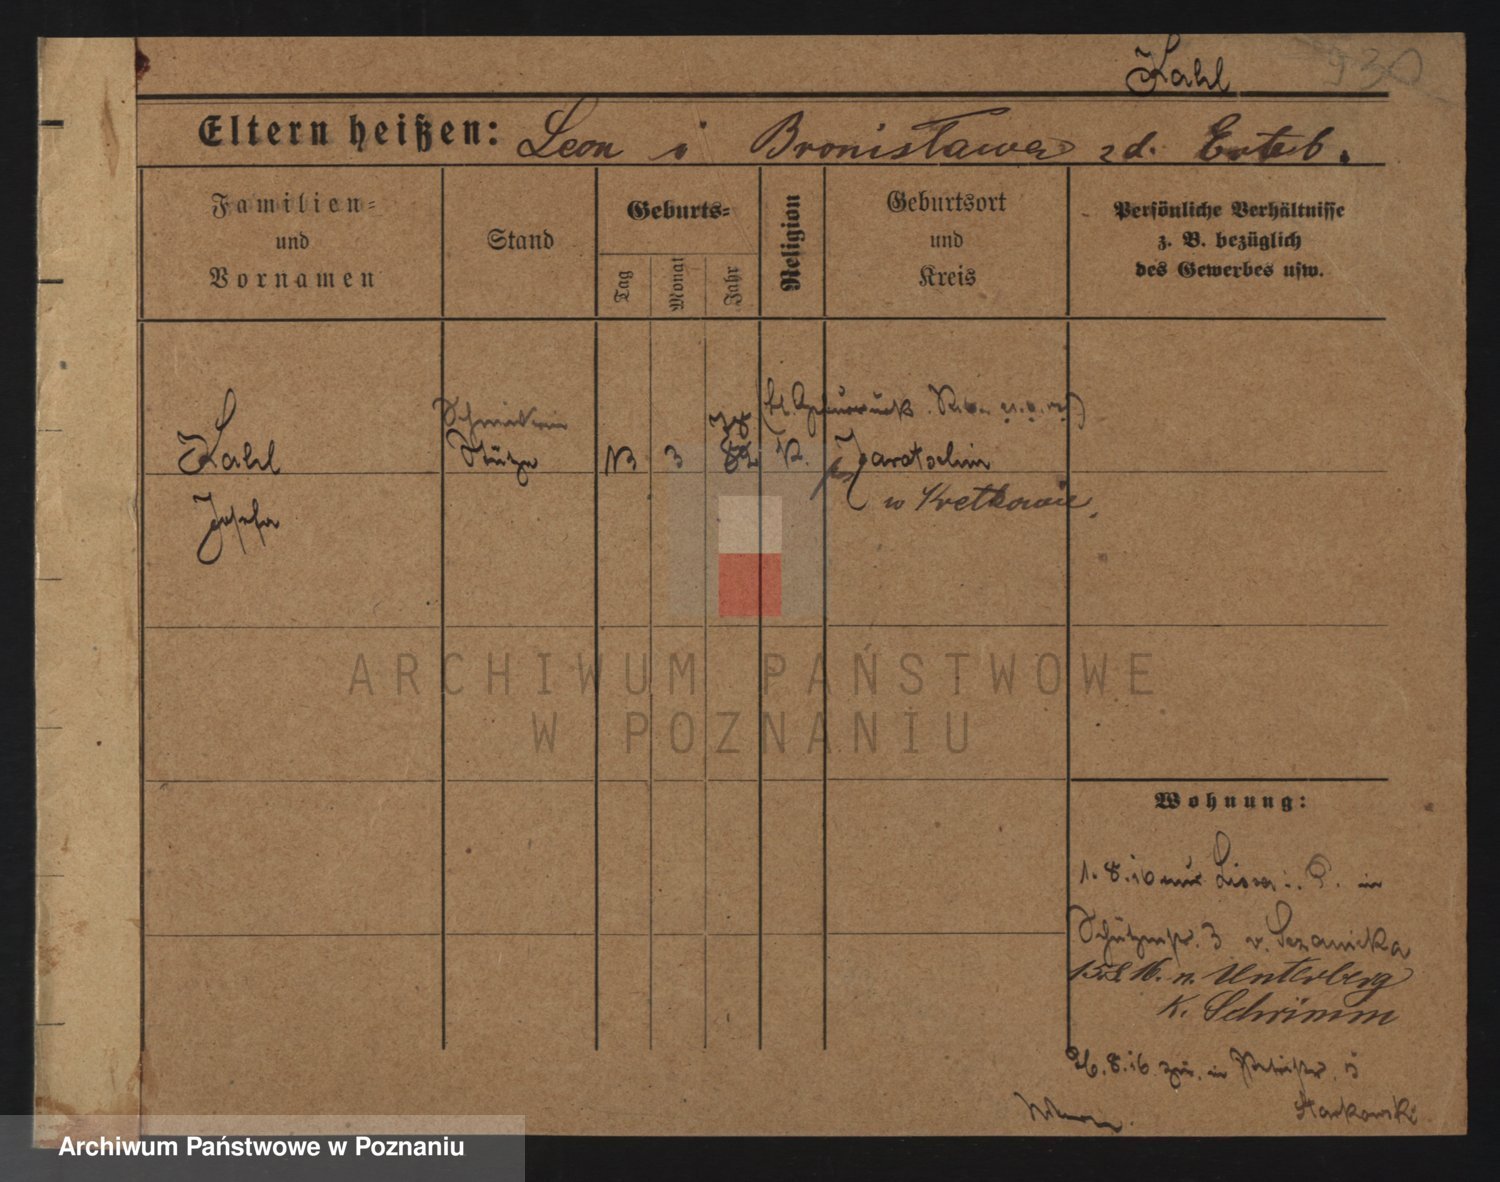 Kahl
930
Eltern heißen: Leon i Bronisława zd. Ertel.
Familien-
und
Vornamen
Stand
Geburts-
Tag
Monat
Jahr
Religion
Geburtsort
und
Kreis
Persönliche Verhältnisse
z. B. bezüglich
des Gewerbes usw.
Kahl
Josefa
Stütze
13
3
82
K.
Jarotschin
w Kretkowie
Wohnung:
1.8.16 aus Lissa i. P. in
Schützenstr. 3 v. Sezanicka
15.8.16. n. Unterberg
K. Schrimm
26.8.16 zur. in
Starkowski
ARCHIWUM PAŃSTWOWE
W POZNANIU
Archiwum Państwowe w Poznaniu